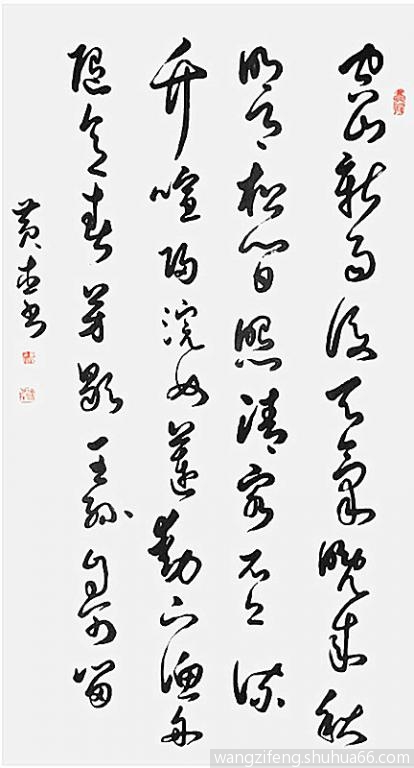 空山新雨後天氣晚來秋
明月松間照清泉石上流
竹喧歸浣女蓮動下漁舟
隨意春芳歇王孫自可留
黄書
wangzifeng.shuhua66.com